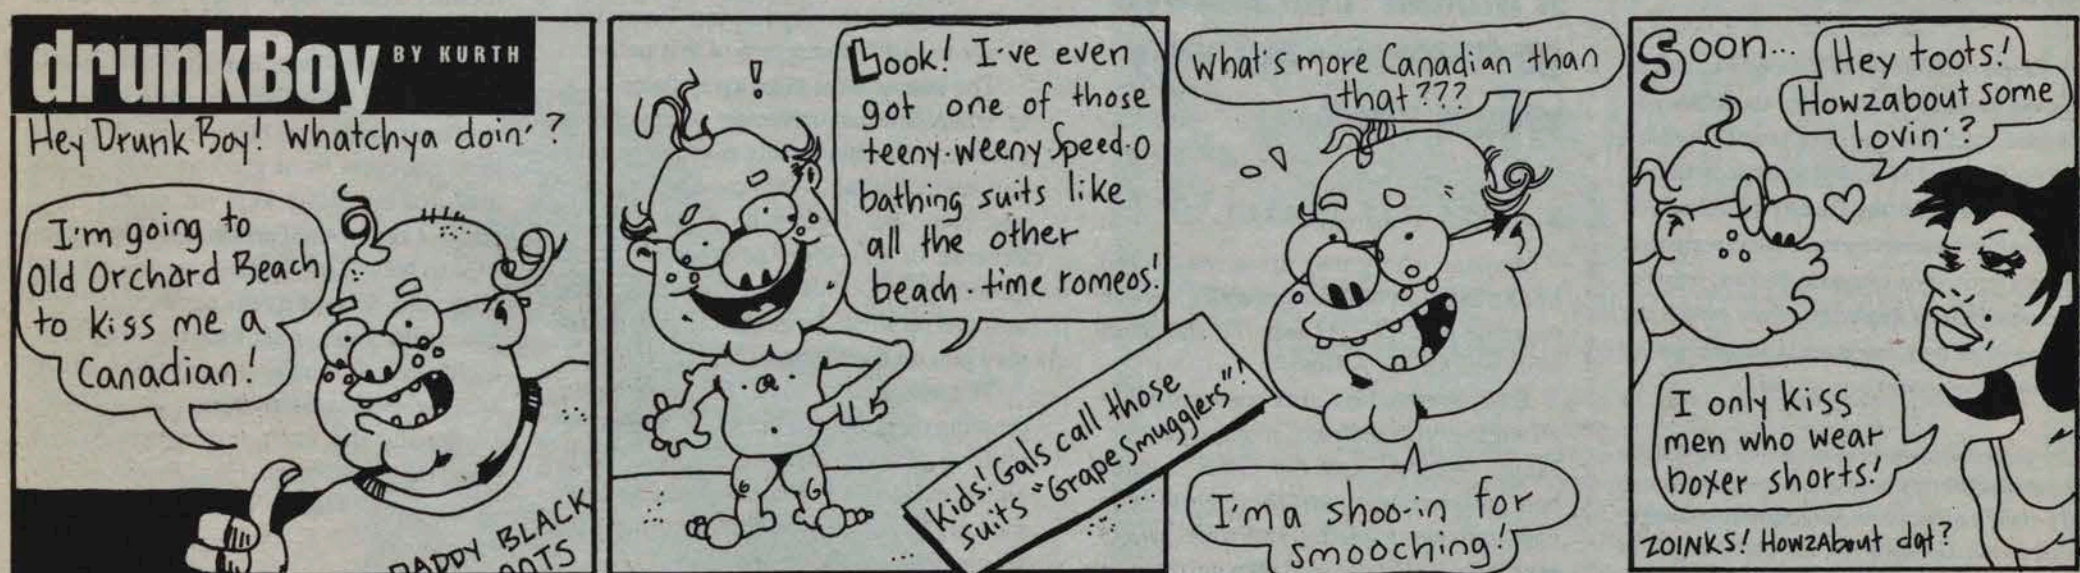 drunkBoy
BY KURTH
Hey Drunk Boy! Whatchya doin'?
I'm going to
Old Orchard Beach
to kiss me a
Canadian!
DADDY BLACK
Look! I've even
got one of those
teeny-weeny Speed-O
bathing suits like
all the other
beach-time romeos!
Kids! Gals call those
suits "Grape Smugglers"!
What's more Canadian than
that???
I'm a shoo-in for
smooching!
Soon...
Hey toots!
Howzabout some
lovin'?
I only kiss
men who wear
boxer shorts!
ZOINKS! HowzAbout dat?